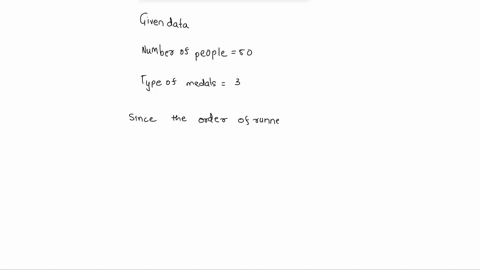 Given data
Number of people = 50
Type of medals = 3
Since the order of runne